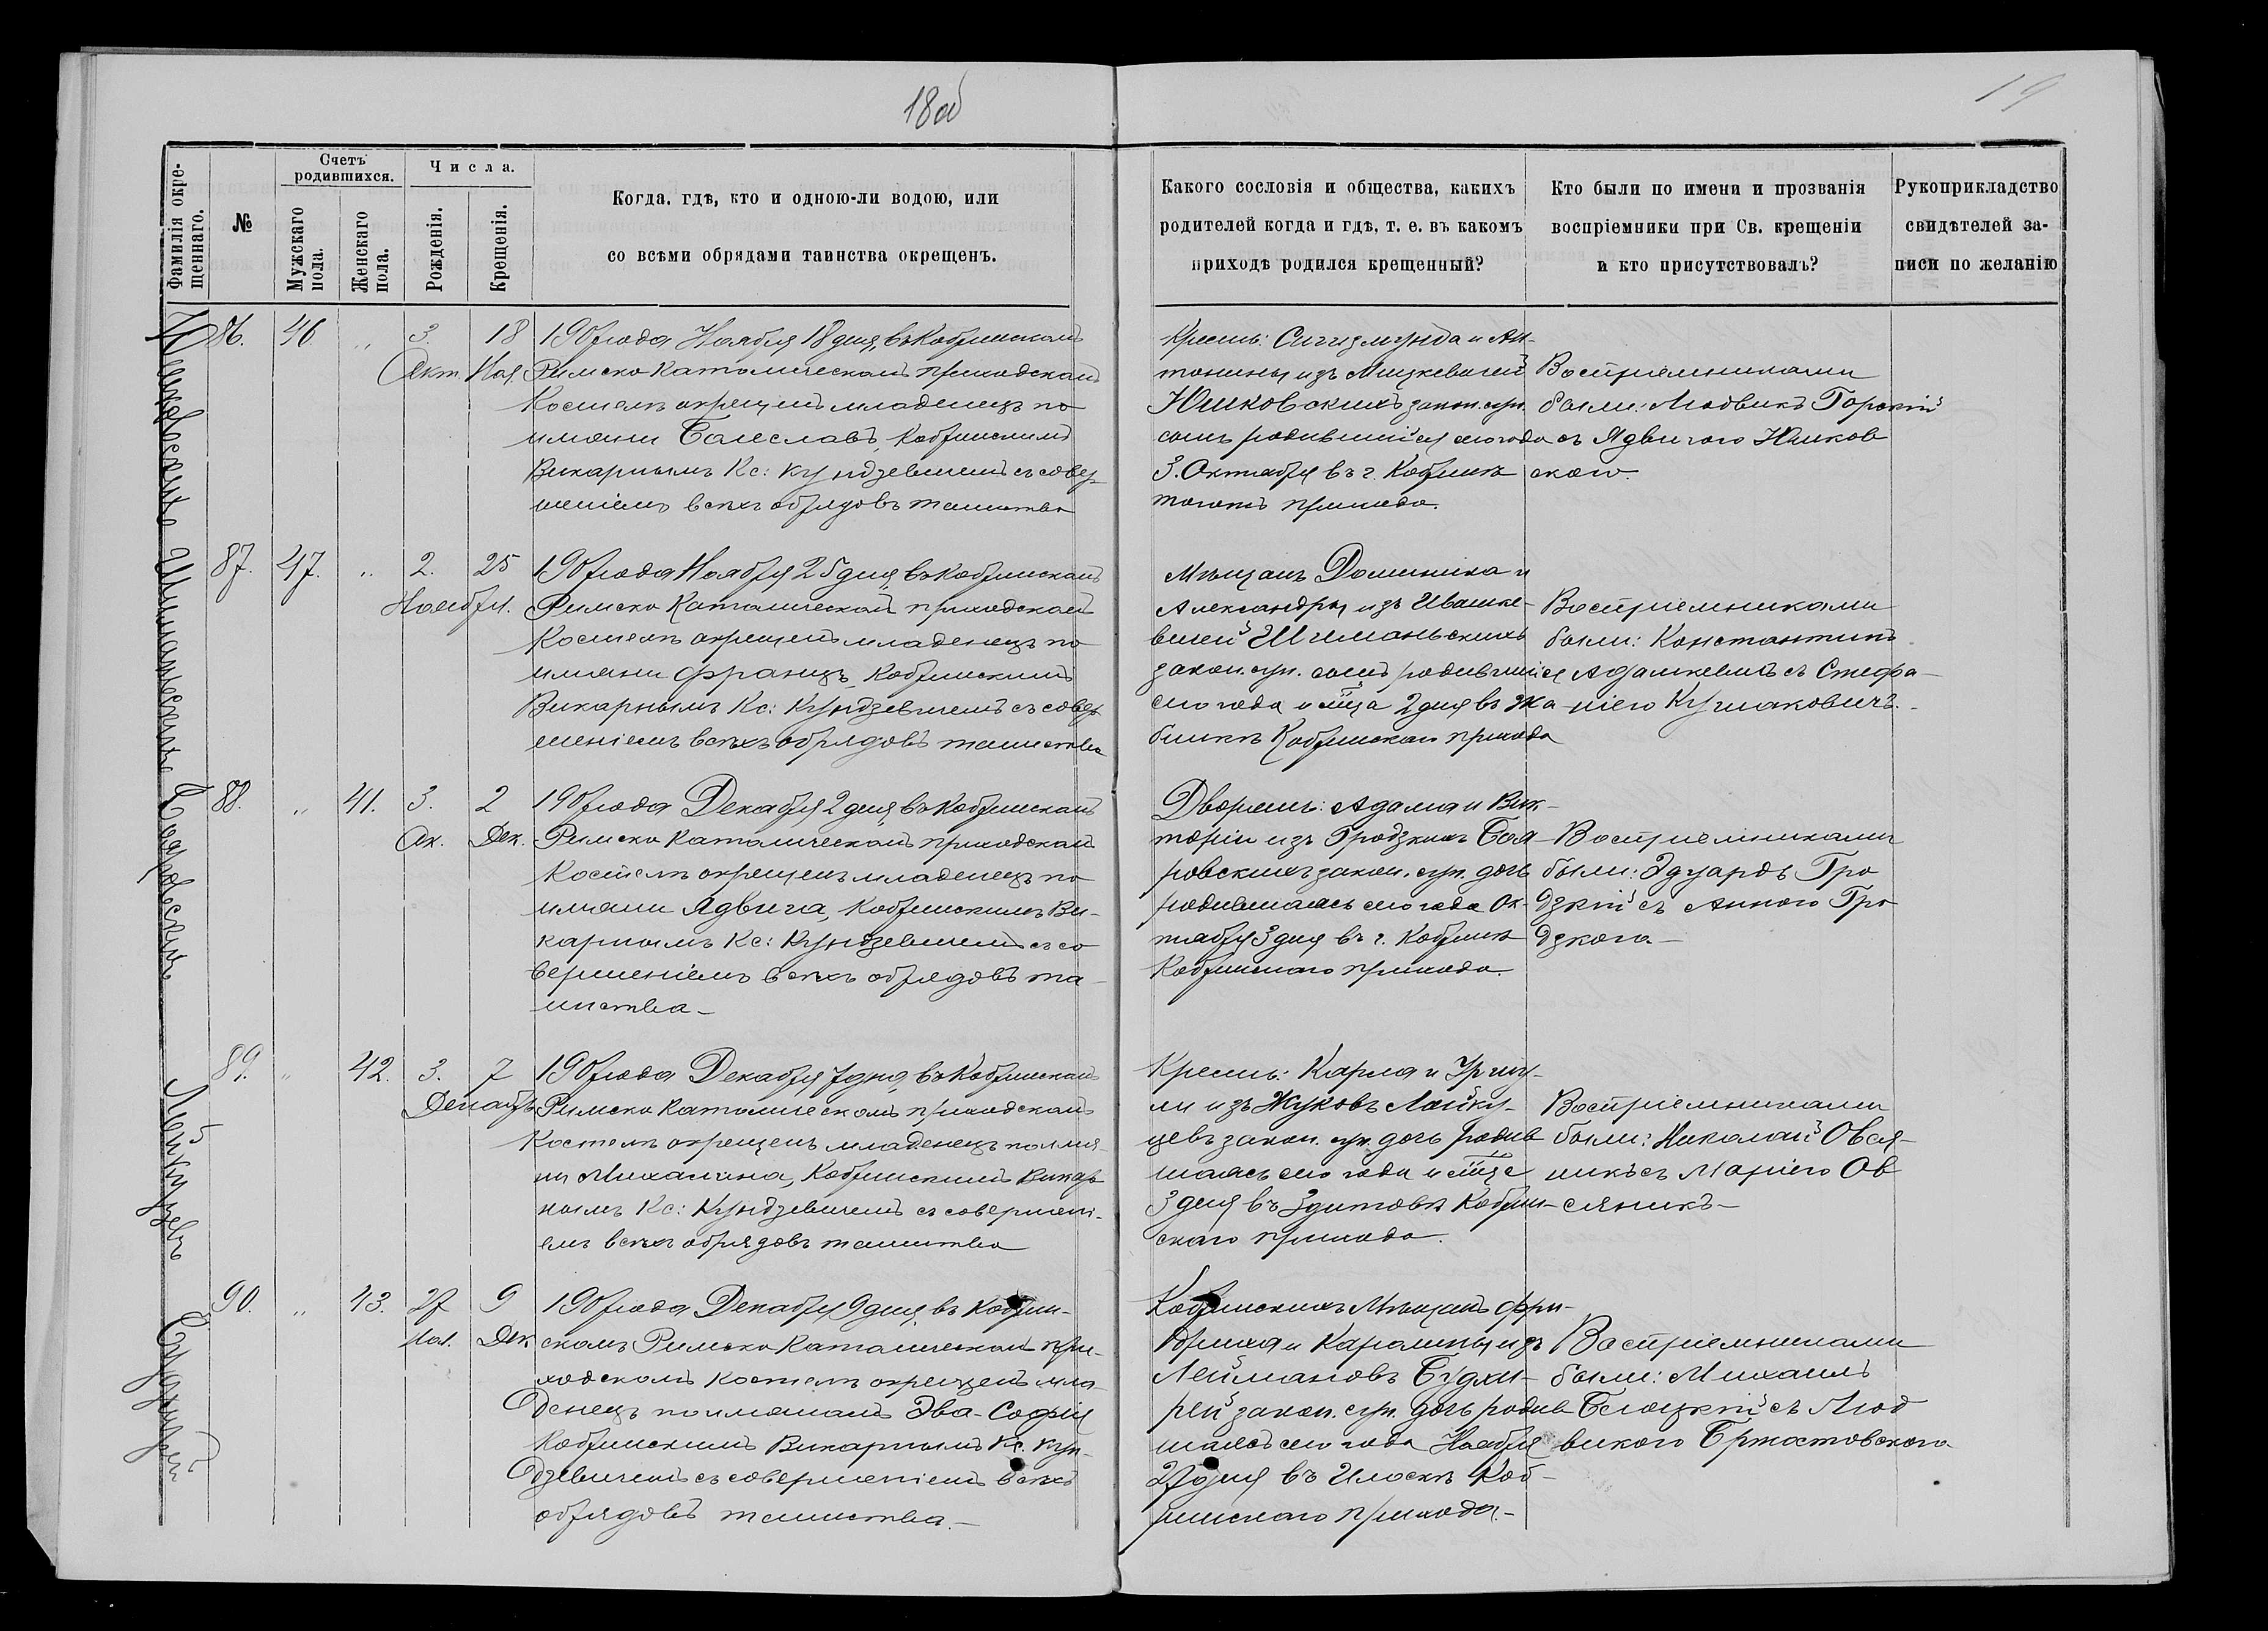 18об
19
Фамилія окре-
щеннаго.
№
Счетъ
родившихся.
Мужскаго
пола.
Женскаго
пола.
Числа.
Рожденія.
Крещенія.
Когда, гдѣ, кто и одною-ли водою, или
со всѣми обрядами таинства окрещенъ.
Какого сословія и общества, какихъ
родителей когда и гдѣ, т. е. въ какомъ
приходѣ родился крещенный?
Кто были по имена и прозванія
воспріемники при Св. крещеніи
и кто присутствовалъ?
Рукоприкладство
свидѣтелей за-
писи по желанію
Юшковскихъ
86. 46 „ 3. 18
Окт. Ноя.
1907 года Ноября 18 дня, въ Кобринскомъ
Римско Католическомъ приходскомъ
Костелѣ окрещенъ младенецъ по
имяни Болеславъ, Кобринскимъ
Викарнымъ Кс: Кундзевичемъ съ совер
шеніемъ всѣхъ обрядовъ таинства
Крестъ: Сигизмунда и Ан-
тонины изъ Мицкевичей
Юшковскихъ закон. супр.
сынъ родившійся сего года
3. Октября въ г. Кобринѣ
тогожъ прихода.
Воспріемниками
были: Людвикъ Горскій
съ Ядвигою Юшков
скою.
87. 47. „ 2. 25
Ноября.
1907 года Ноября 25 дня, въ Кобринскомъ
Римско Католическомъ приходскомъ
Костелѣ окрещенъ младенецъ по
имяни Францъ, Кобринскимъ
Викарнымъ Кс: Кундзевичемъ съ совер
шеніемъ всѣхъ обрядовъ таинства
Мѣщанъ Доминика и
Александры изъ Ивашке-
вичей Шиманьскихъ
закон. супр. сынъ родившійся
сего года и м̃ца 2 дня въ Жа
бинкѣ Кобринскаго прихода
Воспріемниками
были: Константинъ
Адамкевичъ съ Стефа-
ніею Кушаковичъ.
Боровскихъ
88. „ 41. 3. 2
Ок. Дек.
1907 года Декабря 2 дня, въ Кобринскомъ
Римско Католическомъ приходскомъ
Костелѣ окрещенъ младенецъ по
имяни Ядвига, Кобринскимъ Ви-
карнымъ Кс: Кундзевичемъ съ со
вершеніемъ всѣхъ обрядовъ та-
инства-
Дворянъ: Адама и Вик-
торіи изъ Гродзкихъ Боя
ровскихъ закон. супр. дочь
родившаяся сего года Ок-
тября 3 дня въ г. Кобринѣ
Кобринскаго прихода.
Воспріемниками
были: Эдуардъ Гро
дзкій съ Анною Гро
дзкою-
Лайкуцевъ
89. „ 42. 3. 7
Декабр.
1907 года Декабря 7 дня, въ Кобринскомъ
Римско Католическомъ приходскомъ
Костелѣ окрещенъ младенецъ по имя
ни Михалина, Кобринскимъ Викар
нымъ Кс: Кундзевичемъ съ совершені-
емъ всѣхъ обрядовъ таинства
Крестъ: Карла и Уршу-
ли изъ Жуковъ Лайку-
цевъ закон. супр. дочь родив
шаяся сего года и м̃ца
3 дня въ Здитовѣ Кобрин-
скаго прихода.
Воспріемниками
были: Николай Овся-
никъ съ Маріею Ов
сяникъ-
90. „ 43. 27 9
Ноя. Дек
1907 года Декабря 9 дня, въ Кобрин-
скомъ Римско Католическомъ при-
ходскомъ Костелѣ окрещенъ мла-
денецъ по имянамъ Эва-Софія
Кобринскимъ Викарнымъ Кс. Кун-
дзевичемъ съ совершеніемъ всѣхъ
обрядовъ таинства.-
Кобринскихъ Мѣщанъ Фри-
дриха и Каролины изъ
Леймановъ
закон. супр. дочь родив
шаяся сего года Ноября
27 дня въ Илоскѣ Коб-
ринскаго прихода.-
Воспріемниками
были: Михаилъ
съ Люд
викою Бржостовскою